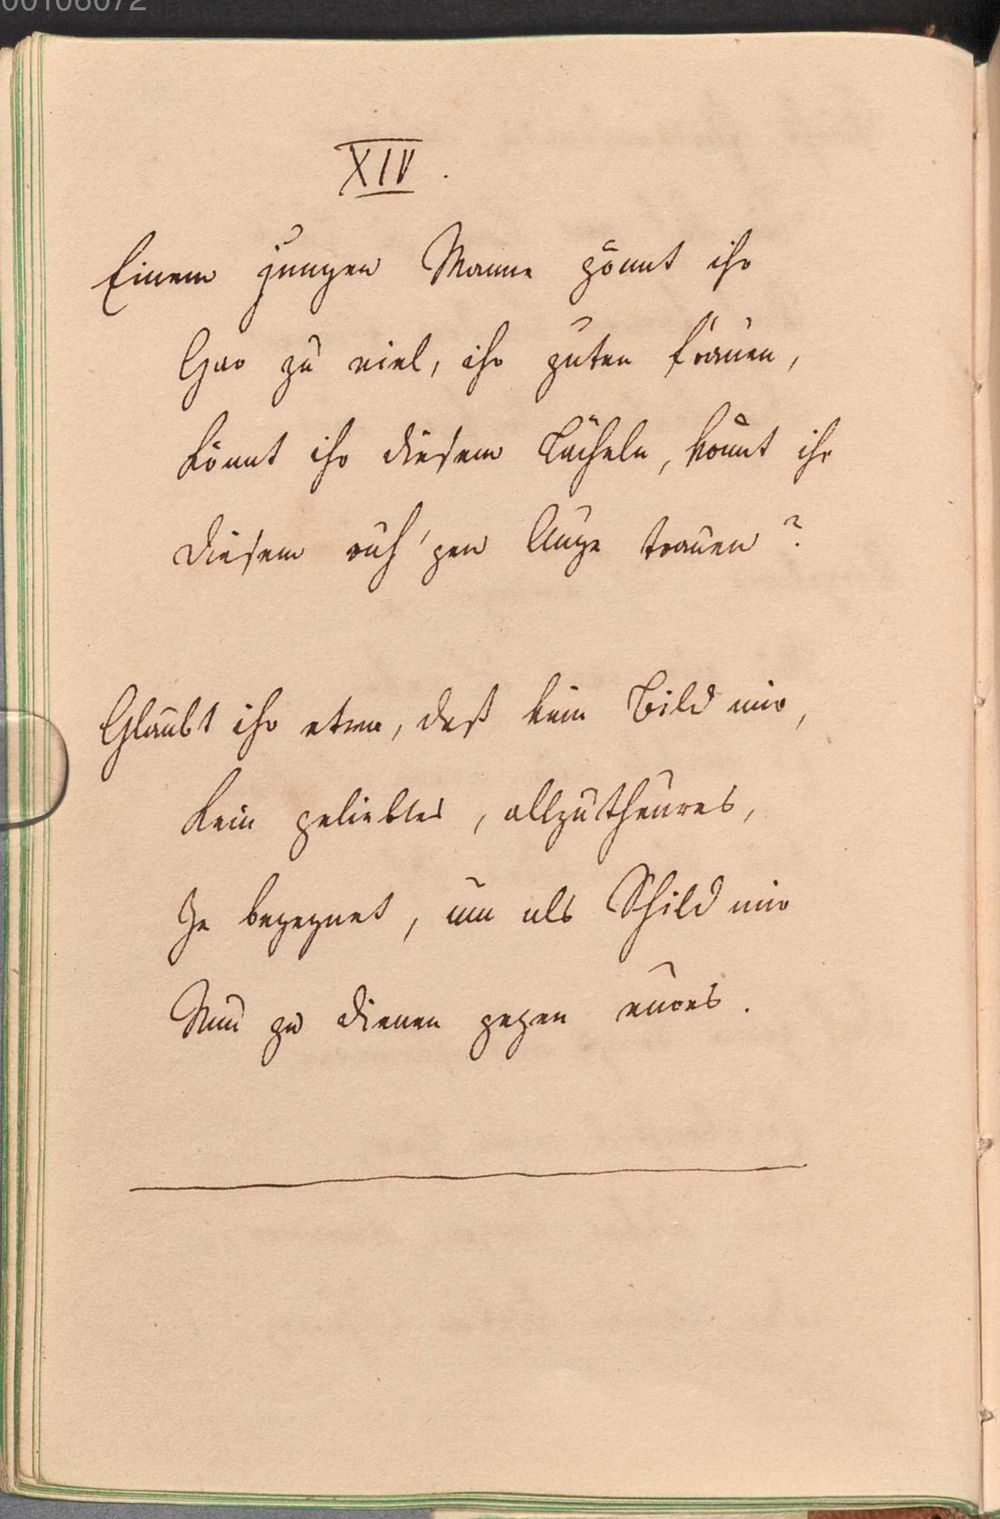 00106072
XIV.
Einem jungen Manne gönnt ihr
Gar zu viel, ihr guten Frauen,
Könnt ihr diesem Lächeln, könnt ihr
Diesem ruh'gen Auge trauen?
Glaubt ihr etwa, daß kein Bild mir,
Kein geliebtes, allzutheures,
Je begegnet, um als Schild mir
Nun zu dienen gegen eures.